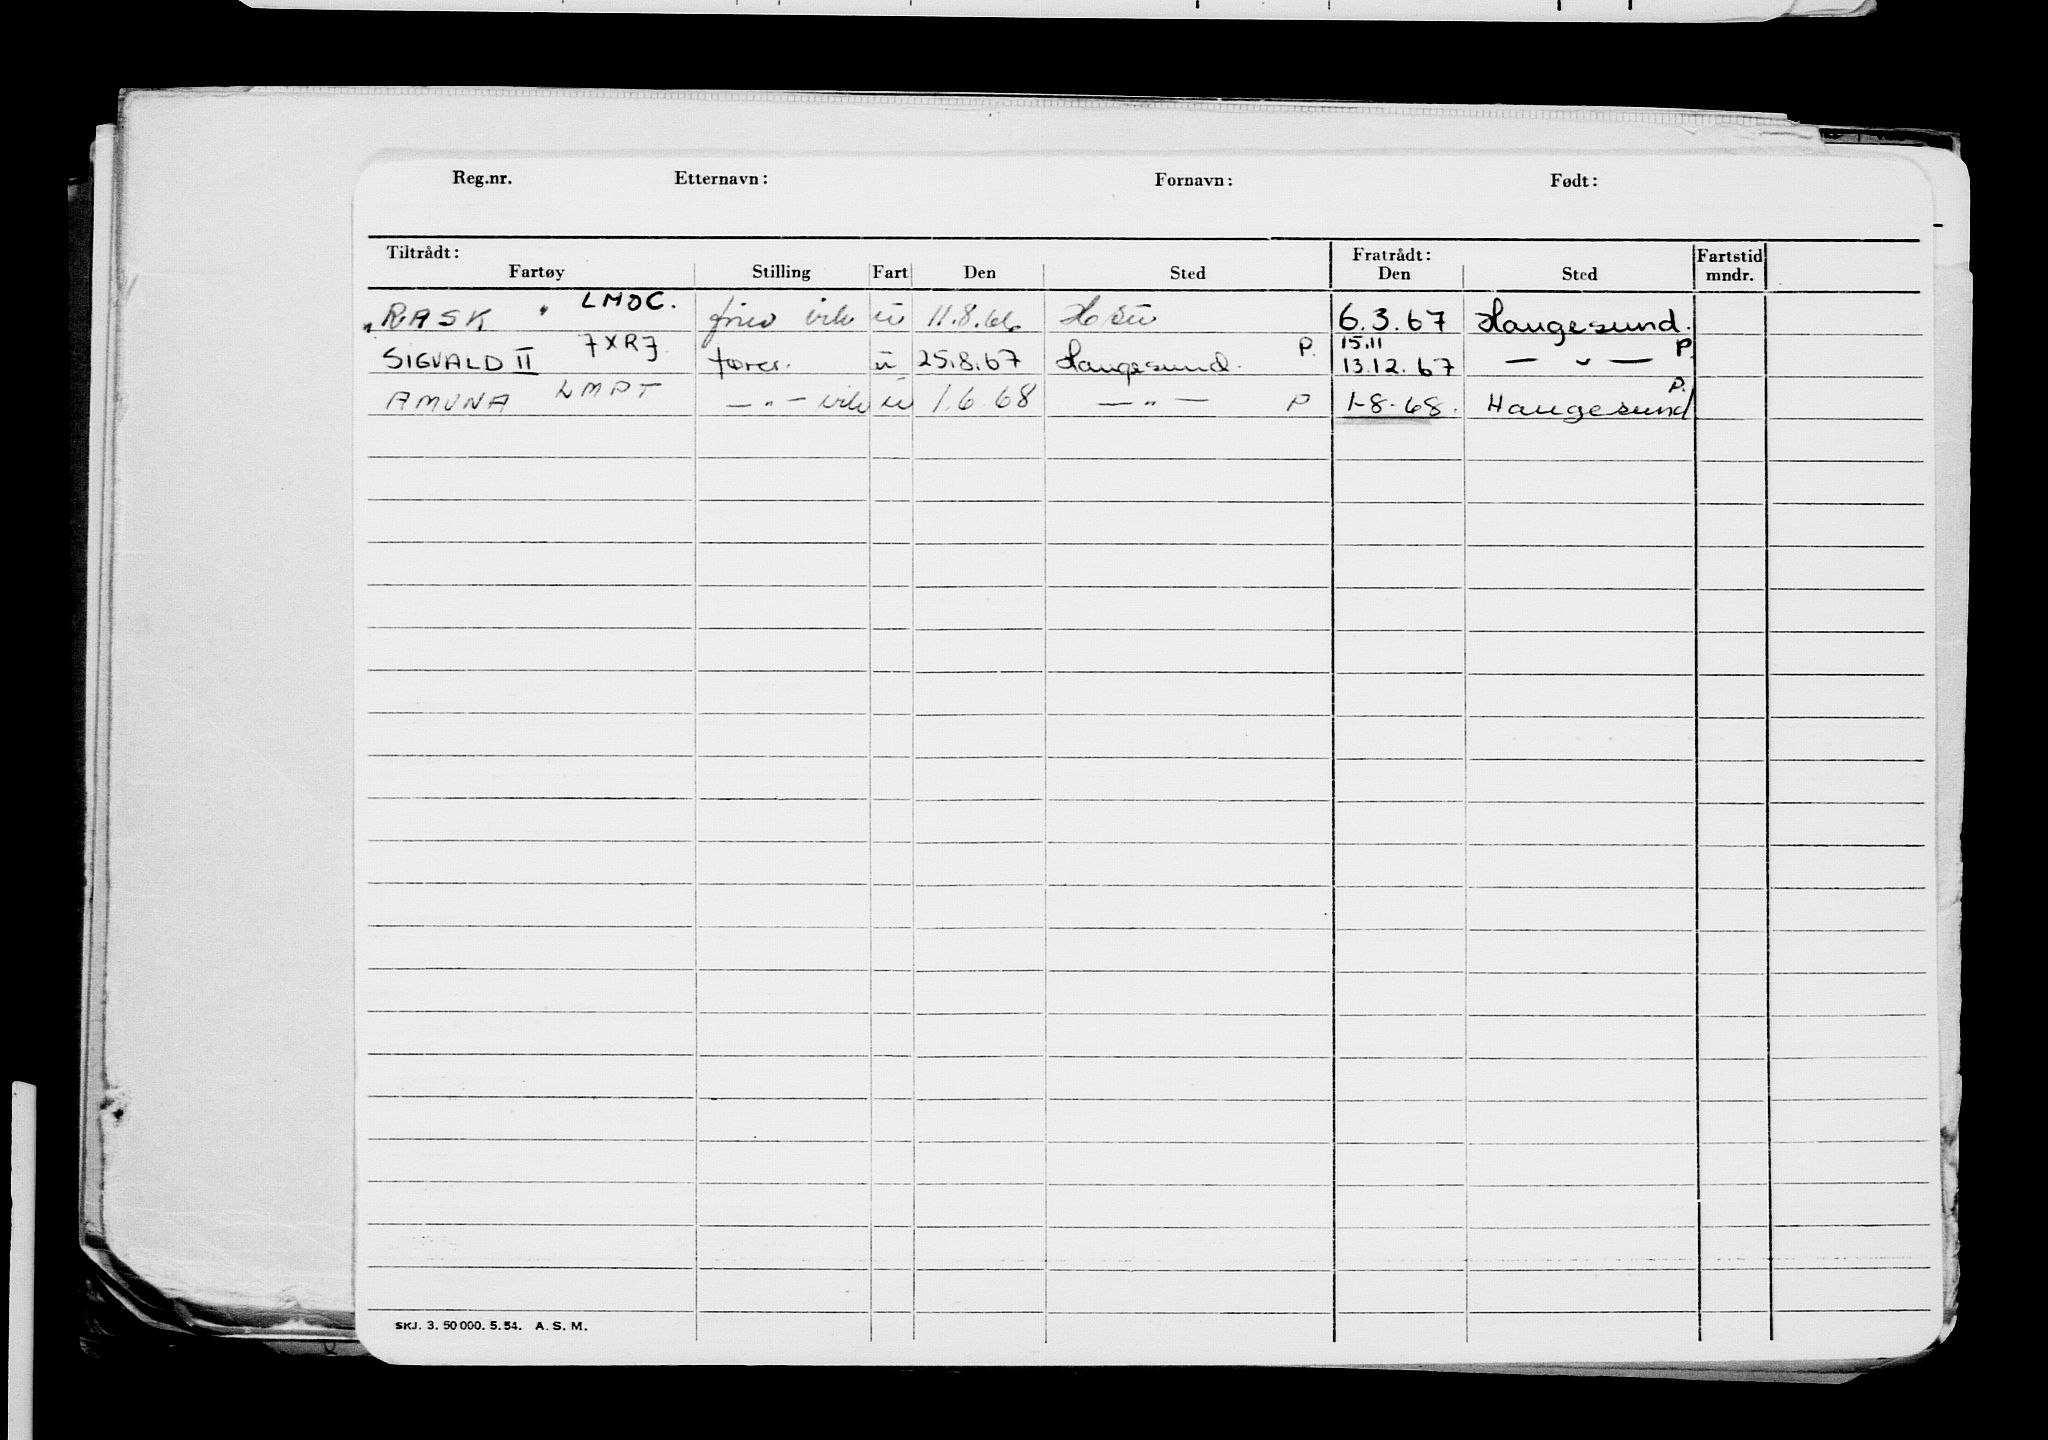 Reg.nr. Etternavn: Fornavn: Født:
Tiltrådt: Fratrådt: Fartstid
Fartøy Stilling Fart Den Sted Den Sted mndr.
"RASK " LMOC. u 11.8.66 6.3.67 Haugesund.
SIGVALD II 7XRJ fører. u 25.8.67 Haugesund. P. 15.11 13.12.67 — " — P.
AMUNA LMPT — " — u 1.6.68 — " — P 1-8-68. Haugesund P.
SKJ. 3. 50 000. 5. 54. A. S. M.